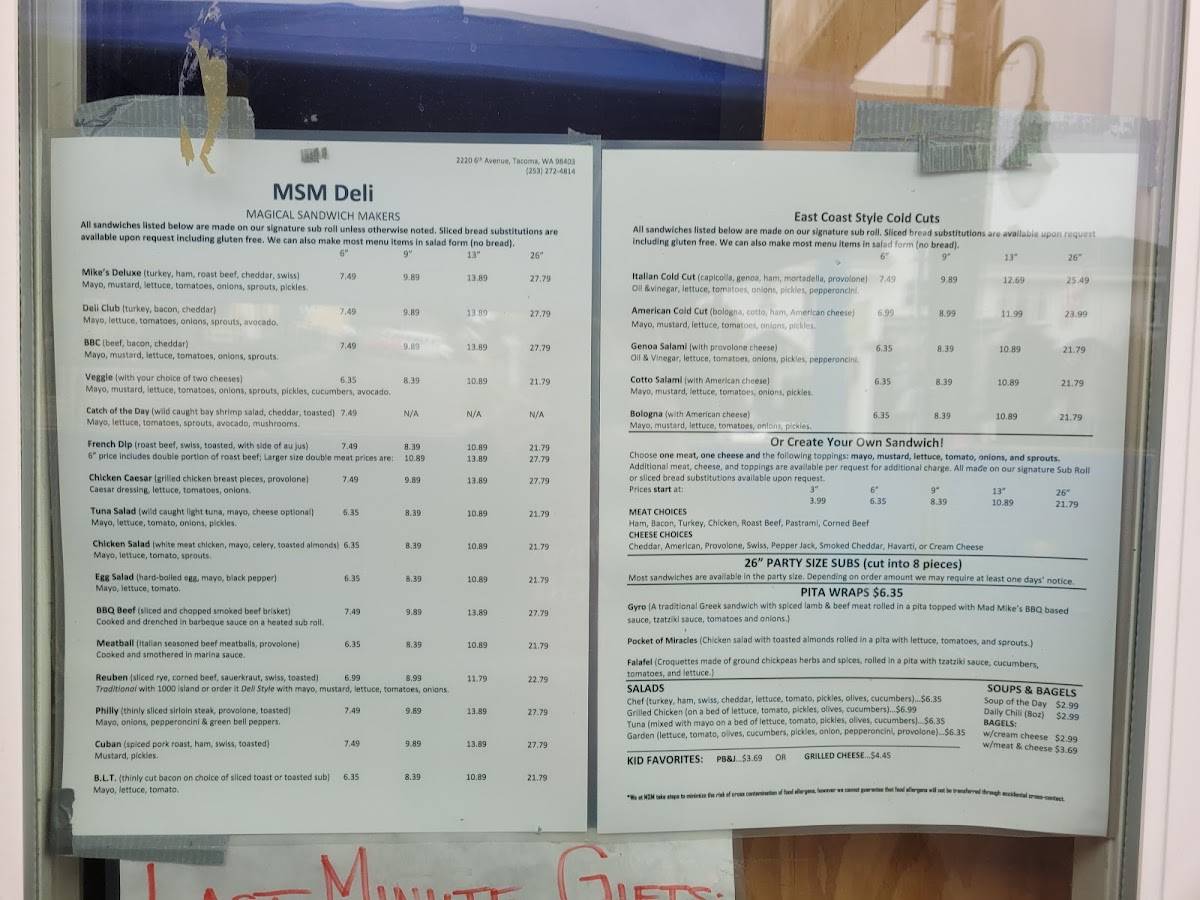 2220 6th Avenue, Tacoma, WA 98403
(253) 272-4814
MSM Deli
MAGICAL SANDWICH MAKERS
All sandwiches listed below are made on our signature sub roll unless otherwise noted. Sliced bread substitutions are
available upon request including gluten free. We can also make most menu items in salad form (no bread).
6" 9" 13" 26"
Mike's Deluxe (turkey, ham, roast beef, cheddar, swiss) 7.49 9.89 13.89 27.79
Mayo, mustard, lettuce, tomatoes, onions, sprouts, pickles.
Deli Club (turkey, bacon, cheddar) 7.49 9.89 13.89 27.79
Mayo, lettuce, tomatoes, onions, sprouts, avocado.
BBC (beef, bacon, cheddar) 7.49 9.89 13.89 27.79
Mayo, mustard, lettuce, tomatoes, onions, sprouts.
Veggie (with your choice of two cheeses) 6.35 8.39 10.89 21.79
Mayo, mustard, lettuce, tomatoes, onions, sprouts, pickles, cucumbers, avocado.
Catch of the Day (wild caught bay shrimp salad, cheddar, toasted) 7.49 N/A N/A N/A
Mayo, lettuce, tomatoes, sprouts, avocado, mushrooms.
French Dip (roast beef, swiss, toasted, with side of au jus) 7.49 8.39 10.89 21.79
6" price includes double portion of roast beef; Larger size double meat prices are: 10.89 13.89 27.79
Chicken Caesar (grilled chicken breast pieces, provolone) 7.49 9.89 13.89 27.79
Caesar dressing, lettuce, tomatoes, onions.
Tuna Salad (wild caught light tuna, mayo, cheese optional) 6.35 8.39 10.89 21.79
Mayo, lettuce, tomato, onions, pickles.
Chicken Salad (white meat chicken, mayo, celery, toasted almonds) 6.35 8.39 10.89 21.79
Mayo, lettuce, tomato, sprouts.
Egg Salad (hard-boiled egg, mayo, black pepper) 6.35 8.39 10.89 21.79
Mayo, lettuce, tomato.
BBQ Beef (sliced and chopped smoked beef brisket) 7.49 9.89 13.89 27.79
Cooked and drenched in barbeque sauce on a heated sub roll.
Meatball (Italian seasoned beef meatballs, provolone) 6.35 8.39 10.89 21.79
Cooked and smothered in marina sauce.
Reuben (sliced rye, corned beef, sauerkraut, swiss, toasted) 6.99 8.99 11.79 22.79
Traditional with 1000 island or order it Deli Style with mayo, mustard, lettuce, tomatoes, onions.
Philly (thinly sliced sirloin steak, provolone, toasted) 7.49 9.89 13.89 27.79
Mayo, onions, pepperoncini & green bell peppers.
Cuban (spiced pork roast, ham, swiss, toasted) 7.49 9.89 13.89 27.79
Mustard, pickles.
B.L.T. (thinly cut bacon on choice of sliced toast or toasted sub) 6.35 8.39 10.89 21.79
Mayo, lettuce, tomato.
East Coast Style Cold Cuts
All sandwiches listed below are made on our signature sub roll. Sliced bread substitutions are available upon request
including gluten free. We can also make most menu items in salad form (no bread).
6" 9" 13" 26"
Italian Cold Cut (capicolla, genoa, ham, mortadella, provolone) 7.49 9.89 12.69 25.49
Oil &vinegar, lettuce, tomatoes, onions, pickles, pepperoncini.
American Cold Cut (bologna, cotto, ham, American cheese) 6.99 8.99 11.99 23.99
Mayo, mustard, lettuce, tomatoes, onions, pickles.
Genoa Salami (with provolone cheese) 6.35 8.39 10.89 21.79
Oil & Vinegar, lettuce, tomatoes, onions, pickles, pepperoncini.
Cotto Salami (with American cheese) 6.35 8.39 10.89 21.79
Mayo, mustard, lettuce, tomatoes, onions, pickles.
Bologna (with American cheese) 6.35 8.39 10.89 21.79
Mayo, mustard, lettuce, tomatoes, onions, pickles.
Or Create Your Own Sandwich!
Choose one meat, one cheese and the following toppings: mayo, mustard, lettuce, tomato, onions, and sprouts.
Additional meat, cheese, and toppings are available per request for additional charge. All made on our signature Sub Roll
or sliced bread substitutions available upon request.
Prices start at: 3" 6" 9" 13" 26"
3.99 6.35 8.39 10.89 21.79
MEAT CHOICES
Ham, Bacon, Turkey, Chicken, Roast Beef, Pastrami, Corned Beef
CHEESE CHOICES
Cheddar, American, Provolone, Swiss, Pepper Jack, Smoked Cheddar, Havarti, or Cream Cheese
26" PARTY SIZE SUBS (cut into 8 pieces)
Most sandwiches are available in the party size. Depending on order amount we may require at least one days' notice.
PITA WRAPS $6.35
Gyro (A traditional Greek sandwich with spiced lamb & beef meat rolled in a pita topped with Mad Mike's BBQ based
sauce, tzatziki sauce, tomatoes and onions.)
Pocket of Miracles (Chicken salad with toasted almonds rolled in a pita with lettuce, tomatoes, and sprouts.)
Falafel (Croquettes made of ground chickpeas herbs and spices, rolled in a pita with tzatziki sauce, cucumbers,
tomatoes, and lettuce.)
SALADS
Chef (turkey, ham, swiss, cheddar, lettuce, tomato, pickles, olives, cucumbers)...$6.35
Grilled Chicken (on a bed of lettuce, tomato, pickles, olives, cucumbers)...$6.99
Tuna (mixed with mayo on a bed of lettuce, tomato, pickles, olives, cucumbers)...$6.35
Garden (lettuce, tomato, olives, cucumbers, pickles, onion, pepperoncini, provolone)...$6.35
SOUPS & BAGELS
Soup of the Day $2.99
Daily Chili (8oz) $2.99
BAGELS:
w/cream cheese $2.99
w/meat & cheese $3.69
KID FAVORITES: PB&J...$3.69 OR GRILLED CHEESE...$4.45
*We at MSM take steps to minimize the risk of cross contamination of food allergens, however we cannot guarantee that food allergens will not be transferred through accidental cross-contact.
LAST MINUTE GIFTS: